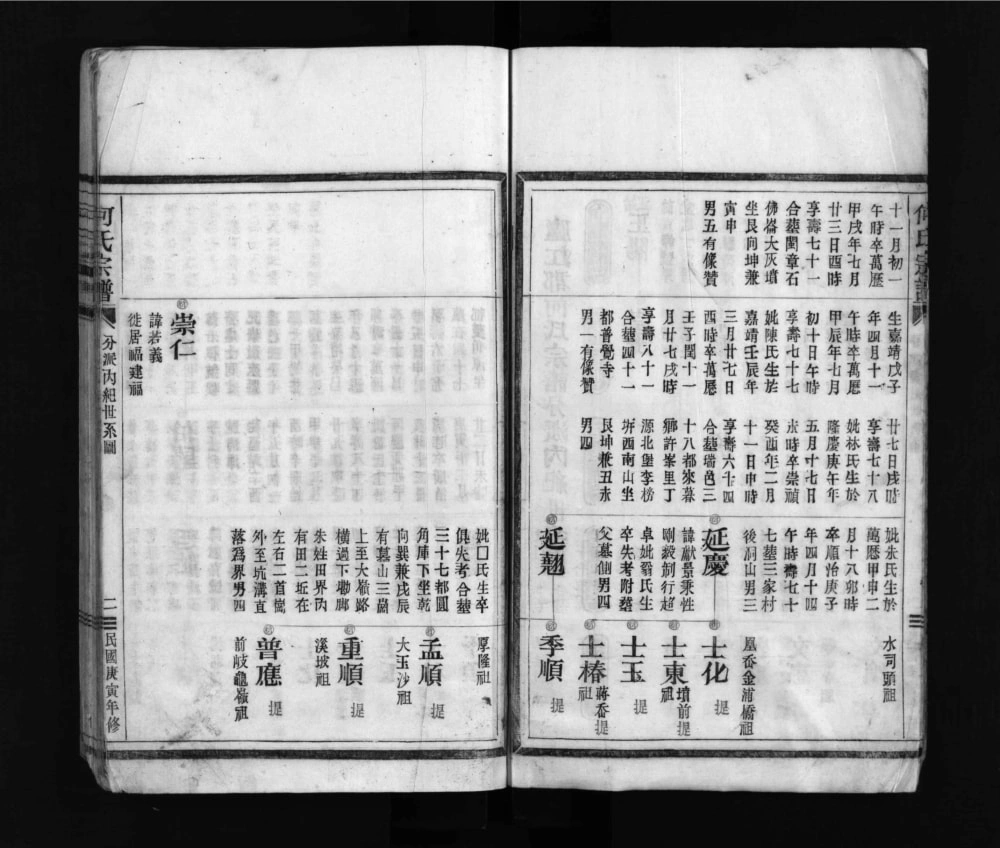 十一月初一
午時卒萬歷
甲戌年七月
廿三日酉時
享壽七十一
合墓閣章石
佛崙大灰墳
坐艮向坤兼
寅申
男五有像贊
生嘉靖戊子
年四月十一
午時卒萬歷
甲辰年七月
初十日午時
享壽七十七
妣陳氏生於
嘉靖壬辰年
三月廿七日
酉時卒萬歷
壬子閏十一
月廿七戌時
享壽八十一
合墓四十一
都普覺寺
男一有像贊
廿七日戌時
享壽七十八
妣林氏生於
隆慶庚午年
五月十七日
未時卒崇禎
癸酉年二月
十一日申時
享壽六十四
合墓瑞邑三
十八都來暮
鄉許峯里丁
源北堡李榜
垪西南山坐
艮坤兼丑未
男四
妣朱氏生於
萬歷甲申二
月十八卯時
卒順治庚子
年四月十四
午時壽七十
七墓三家村
後洞山男三
延慶
諱獻景秉性
剛毅制行超
卓妣翁氏生
卒失考附塟
父墓側男四
延翹
水司頭祖
凰岙金浦橋祖
士化 提
士東 墳前提祖
士玉 提
士椿 蔣岙提祖
季順 提
何氏宗譜
妣囗氏生卒
俱失考合墓
三十七都圓
角庫下坐乾
向巽兼戌辰
有墓山三崗
上至大嶺路
橫過下墈脚
朱姓田界內
有田二坵在
左右二首儻
外至坑溝直
落爲界男四
厚隆祖
孟順 提
大玉沙祖
重順 提
溪坡祖
普應 提
前岐龜嶺祖
崇仁
諱若義
徙居福建福
何氏宗譜
分派內紀世系圖
二
民國庚寅年修